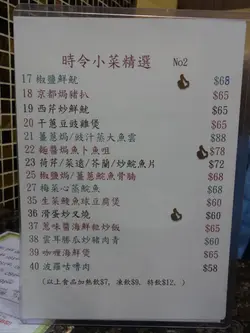 時令小菜精選 No2
17 椒鹽鮮魷 $68
18 京都焗豬扒 $65
19 西芹炒鮮魷 $65
20 干蔥豆豉雞煲 $65
21 薑蔥焗/豉汁蒸大魚雲 $68
22 麵醬焗魚卜魚咀 $78
23 荷芹/菜遠/芥蘭/炒鯇魚片 $72
25 椒鹽焗/薑蔥鯇魚骨腩 $68
27 梅菜心蒸鯇魚 $68
35 生菜鯪魚球豆腐煲 $65
36 滑蛋炒叉燒 $60
37 蔥味醬海鮮粒炒飯 $65
38 雲耳勝瓜炒豬肉青 $65
39 咖喱海鮮煲 $65
40 波羅咕嚕肉 $58
(以上食品加熱飲$7, 凍飲$9, 時飲$12, )